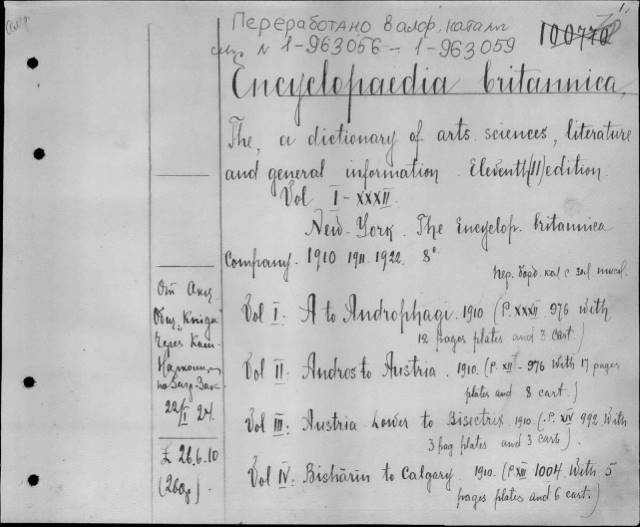 Переработано в алф. каталог
1.
№ 1-963056 - 1-963059
100770
Encyclopaedia britannica,
The, a dictionary of arts sciences, literature
and general information. Eleventh (11) edition.
Vol I-XXXII.
New-York. The Encyclop. britannica
Company. 1910 1911. 1922. 8°
Vol I: A to Androphagi. 1910 (P. XXXII, 976 with
12 pages plates and 8 cart.)
Vol II: Andros to Austria. 1910. (P. XII - 976 with 17 pages
plates and 8 cart.)
Vol III: Austria Lower to Bisectrix. 1910. (P. XIV 992 with
3 pag plates and 3 carts).
Vol IV: Bishārīn to Calgary. 1910. (P. XII 1004 with 5
pages plates and 6 cart.)
От Акц
Общ. Книга
через Ком.
22/I 24.
£ 26.6.10
(260р).